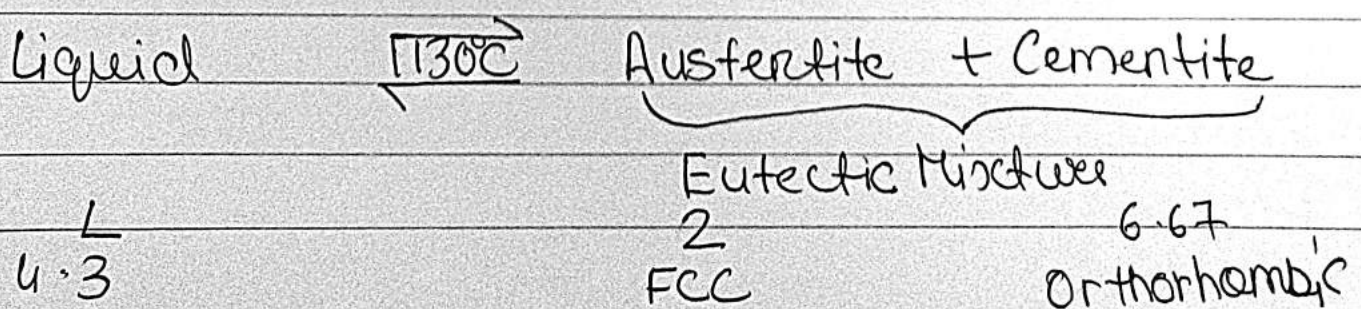 Liquid 1130°C Austentite + Cementite
Eutectic Mixture
L 2 6.67
4.3 FCC Orthorhombic